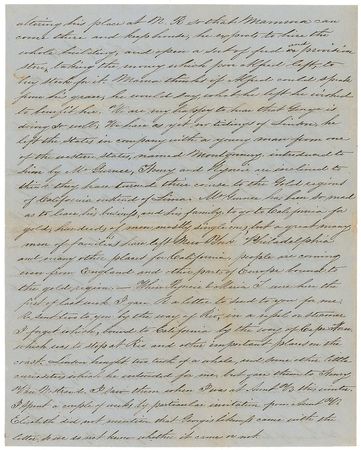 altering his place at M. R. so that Mamma can
come there and keep house, he expects to hire the
whole building and open a sort of feed and provision
store, taking the money which poor Alfred left, to
My Mama thinks if Alfred could speak
from his grave, he would say what he left he wished
to benefit her. We are very happy to hear that George is
doing so well. We have as yet no tidings of he
left the States in company with a young man from one
of the eastern states, named Montgomery, introduced to
him by Mr and are inclined to
think they have turned their course to the Gold regions
of California instead of Mr has been so mad
as to leave his business, and his family, to go to California for
gold, hundreds of men mostly single ones, but a great many
men of families have left New York Philadelphia
and many other places for California, people are coming
even from England and other parts of Europe bound to
the gold region. — When I saw her the
first of last week I gave her a letter to send to you for me
to you by the way of Rio, in a vessel or steamer
I forget which, bound to California by the way of Cape Horn
which was to stop at Rio and other important places on the
coast. bought two teeth of a whale, and some other little
curiosities which he intended for me, but gave them to Henry
Van I saw them when I was at Aunt this winter.
I spent a couple of weeks by particular invitation from Aunt
Elizabeth did not mention that George's likeness came with the
letter, so we do not know whether it came or not.